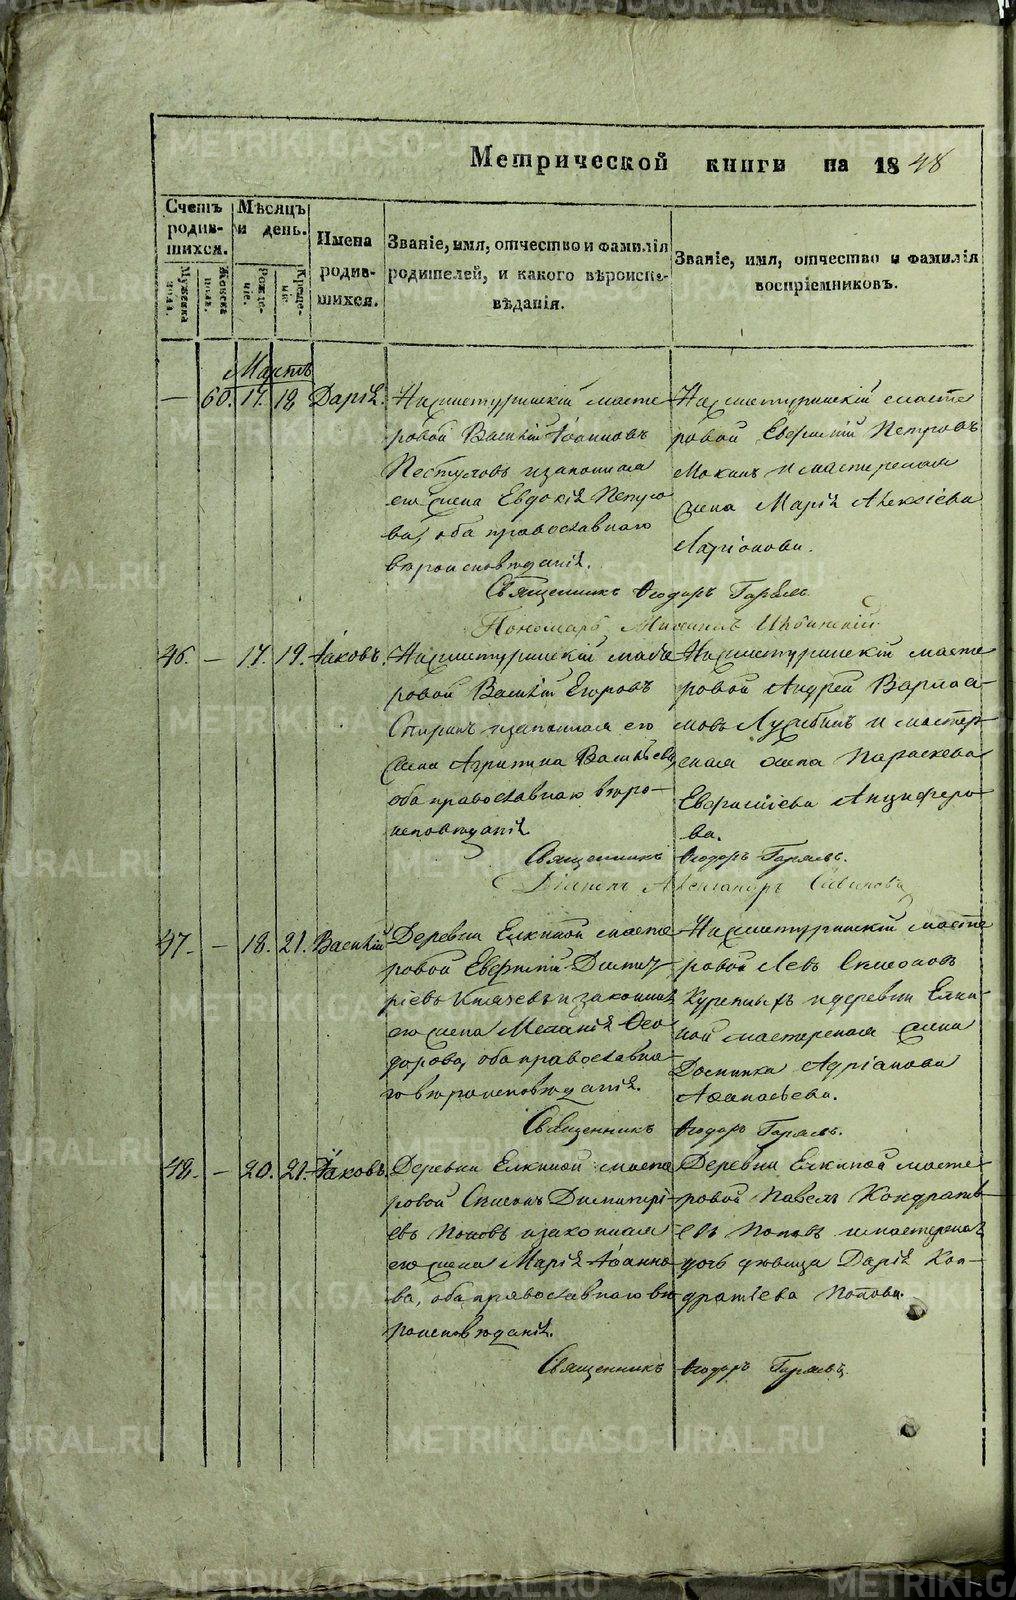 Метрической книги на 1848
Счетъ родив-шихся.
Мужеска пола.
Женска пола.
Мѣсяцъ и день.
Рожде-нiе.
Креще-нiе.
Имена родив-шихся.
Званiе, имя, отчество и фамилiя родителей, и какого вѣроиспо-вѣданiя.
Званiе, имя, отчество и фамилiя воспрiемниковъ.
Мартъ
— 60. 17. 18 Дарiя.
Нижнетуринскiй масте
ровой Василiй Iоанновъ
Пестуловъ и законная
его жена Евдокiя Петро
ва, оба православнаго
вѣроисповѣданiя.
Нижнетуринскiй масте
ровой Евфимiй Петровъ
Мокинъ и мастерская
жена Марiя Алексiева
Ларiонова.
Священникъ Ѳеодоръ
Пономарь
46. — 17. 19. Iаковъ.
Нижнетуринскiй масте
ровой Василiй Егоровъ
Спиринъ и законная его
жена Агрипина Васильева,
оба православнаго вѣро-
исповѣданiя
Нижнетуринскiй масте
ровой Андрей Варлаа-
мовъ и мастер-
ская жена Параскева
Евфимiева Анциферо-
ва.
Священникъ Ѳеодоръ
Дiаконъ Александръ
47. — 18. 21. Василiй
Деревни Елкиной масте
ровой Евфимiй Димит
рiевъ и законная
его жена Меланiя Ѳео
дорова, оба православна
го вѣроисповѣданiя.
Нижнетуринскiй масте
ровой Левъ Симеоновъ
Куренныхъ и деревни Елки-
ной мастерская жена
Домника Адрiанова
Аѳанасьева.
Священникъ Ѳеодоръ
48. — 20. 21. Iаковъ.
Деревни Елкиной масте
ровой Симеонъ Димитрi-
евъ Поповъ и законная
его жена Марiя Iоанно
ва, оба православнаго вѣ
роисповѣданiя.
Деревни Елкиной масте
ровой Павелъ Кондратiь
евъ Поповъ и мастерская
дочь дѣвица Дарiя Кон-
дратiева Попова.
Священникъ Ѳеодоръ
METRIKI.GASO-URAL.RU